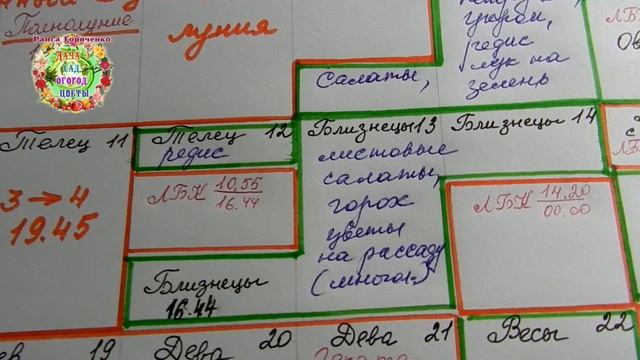 Полнолуние
луния
Салаты,
огурой,
редис
лук на
зелень
ЛБ
Ов
Раиса Горяченко:
ДАЧА
САД,
ОГОРОД,
ЦВЕТЫ
Телец 11
3 → 4
19.45
Телец 12
редис
ЛБК 10.55
16.44
Близнецы
16.44
Близнецы 13
листовые
салаты,
горох
цветы
на рассаду
(многол)
Близнецы 14
ЛБК 14.20
00.00
с
ЛБ
19
Дева 20
Дева 21
Весы 22